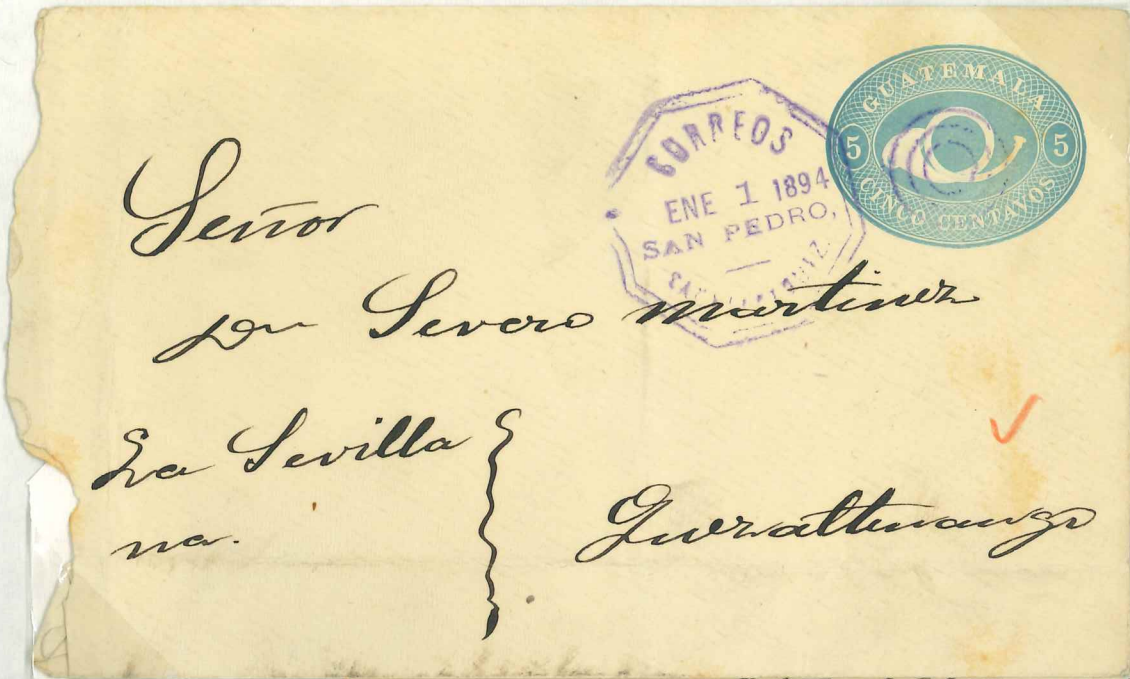 GUATEMALA
5 5
CINCO CENTAVOS
CORREOS
ENE 1 1894
SAN PEDRO,
Señor
Dn Severo Martinez
La Sevilla
na.
Quezaltenango